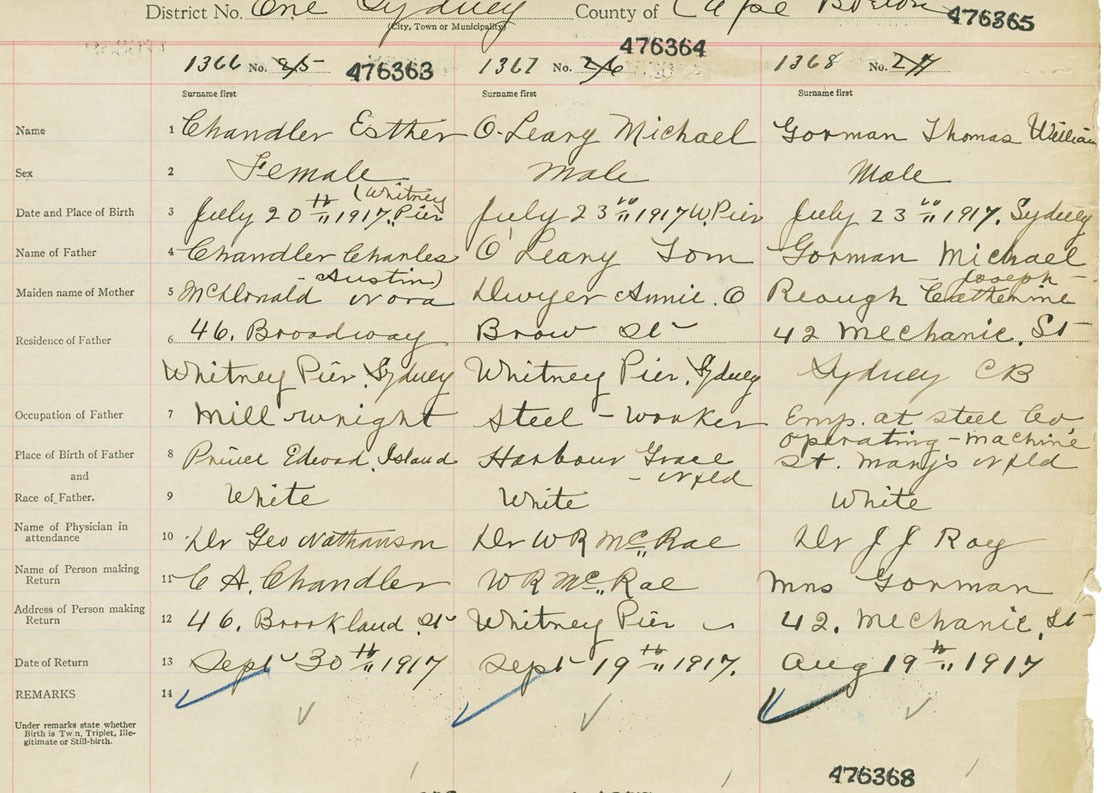 District No. One Sydney County of Cape Breton 476365
(City, Town or Municipality)
1366 No. 25 476363 1367 No. 26 476364 1368 No. 27
Surname first Surname first Surname first
Name 1 Chandler Esther O-Leary Michael Gorman Thomas William
Sex 2 Female Male Male
(Whitney
Date and Place of Birth 3 July 20th 1917, Pier July 23rd 1917 W. Pier July 23rd 1917, Sydney
Name of Father 4 Chandler Charles O'Leary Tom Gorman Michael
- Austin) - Joseph -
Maiden name of Mother 5 McDonald Nora Dwyer Annie. O Reough Catherine
Residence of Father 6 46. Broadway Brow St 42 Mechanic. St
Whitney Pier, Sydney Whitney Pier, Sydney Sydney CB
Occupation of Father 7 Mill wright Steel - worker Emp. at Steel Co
operating - machine
Place of Birth of Father 8 Prince Edward Island Harbour Grace St. Mary's Nfld
and - Nfld
Race of Father. 9 White White White
Name of Physician in
attendance 10 Dr Geo Nathanson Dr W R McRae Dr J J Roy
Name of Person making
Return 11 C A. Chandler W R McRae Mrs Gorman
Address of Person making
Return 12 46. Brookland St Whitney Pier 42. Mechanic, St
Date of Return 13 Sept 30th 1917 Sept 19th 1917. Aug 19th 1917
REMARKS 14
Under remarks state whether
Birth is Twin, Triplet, Ille-
gitimate or Still-birth.
476368